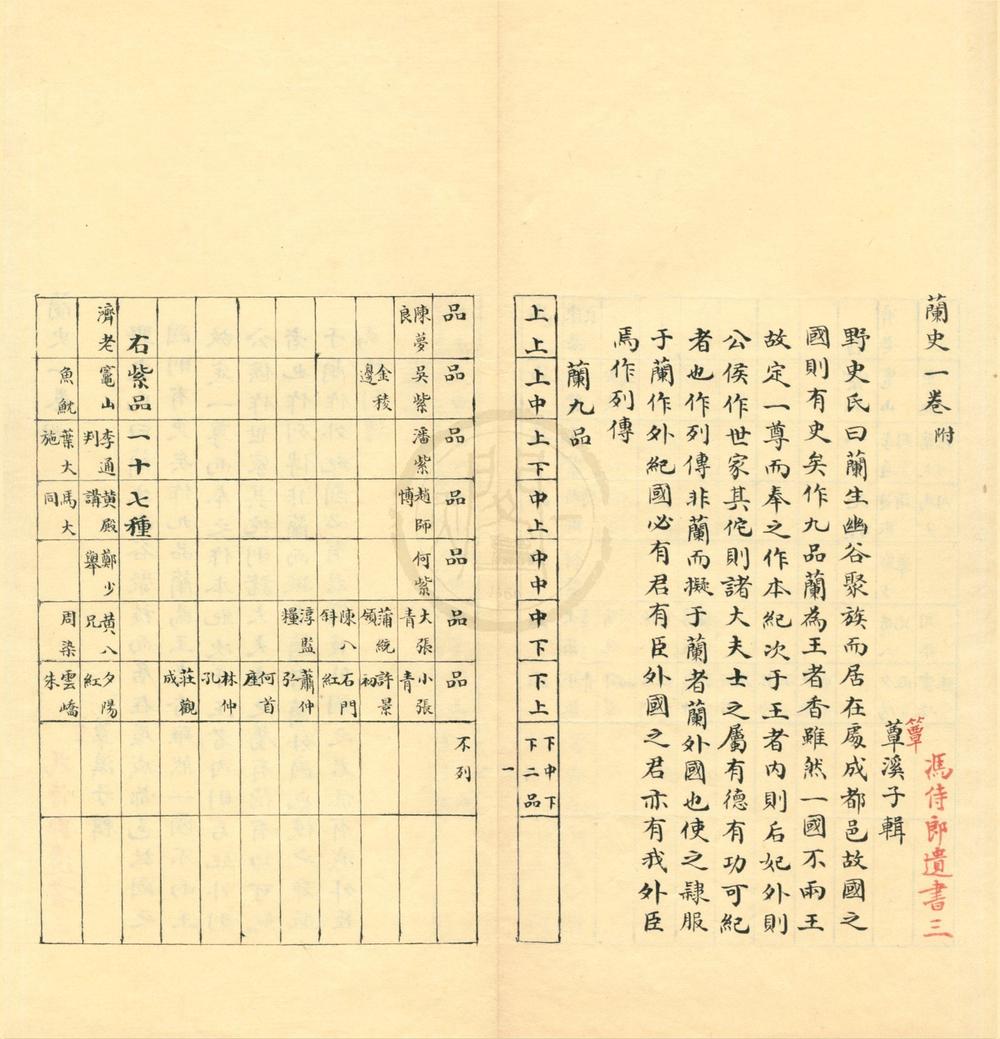 蘭史一卷附
馮侍郎遺書三
簟
蕈溪子輯
野史氏曰蘭生幽谷聚族而居在處成都邑故國之
國則有史矣作九品蘭為王者香雖然一國不兩王
故定一尊而奉之作本紀次于王者內則后妃外則
公侯作世家其佗則諸大夫士之屬有德有功可紀
者也作列傳非蘭而擬于蘭者蘭外國也使之隸服
于蘭作外紀國必有君有臣外國之君亦有我外臣
焉作列傳
蘭九品
上上 上中 上下 中上 中中 中下 下上 下中下下二品
一
品 品 品 品 品 品 品 不列
陳夢良 吳紫 潘紫 趙師博 何紫 大張青 小張青
金稜邊 蒲統領 許景初
陳八斜 石門紅
淳監糧 蕭仲弘
何首座
林仲孔
莊觀成
右紫品一十七種
濟老 竈山 李通判 黃殿講 鄭少舉 黃八兄 夕陽紅
魚魫 葉大施 馬大同 周染 雲嶠朱